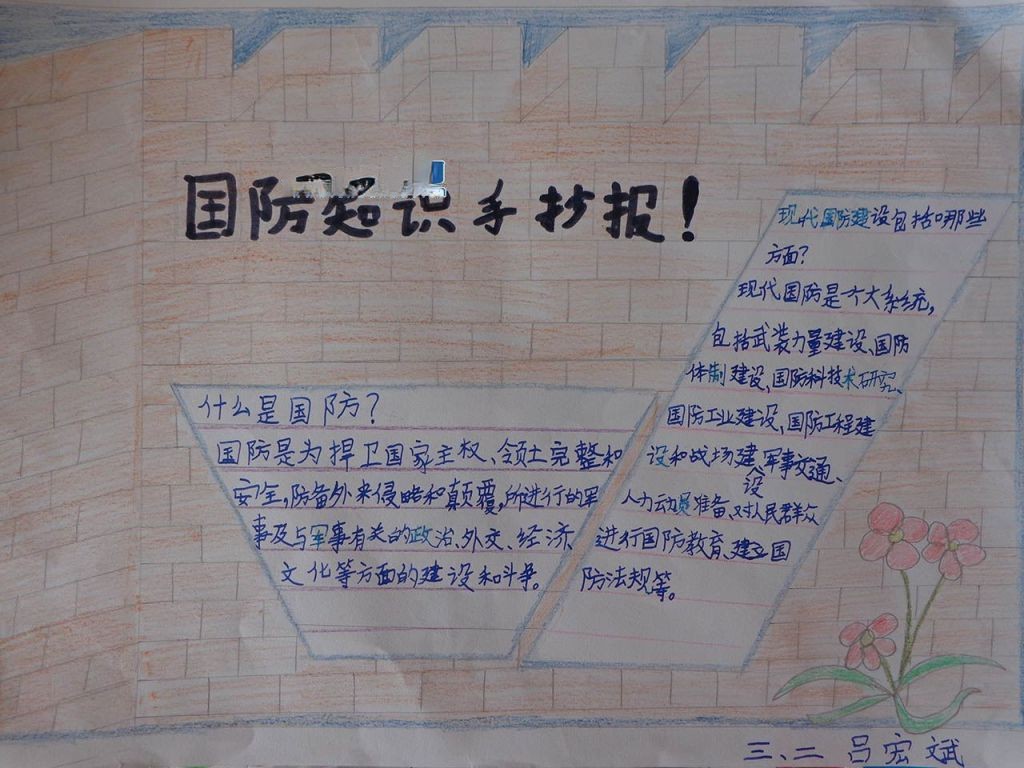 国防知识手抄报！
什么是国防？
国防是为捍卫国家主权、领土完整和
安全，防备外来侵略和颠覆，所进行的军
事及与军事有关的政治、外交、经济、
文化等方面的建设和斗争。
现代国防建设包括哪些
方面？
现代国防是个大系统，
包括武装力量建设、国防
体制建设、国防科技术研究、
国防工业建设、国防工程建
设和战场建设、军事交通、
人力动员准备、对人民群众
进行国防教育、建立国
防法规等。
三、二 吕宏斌